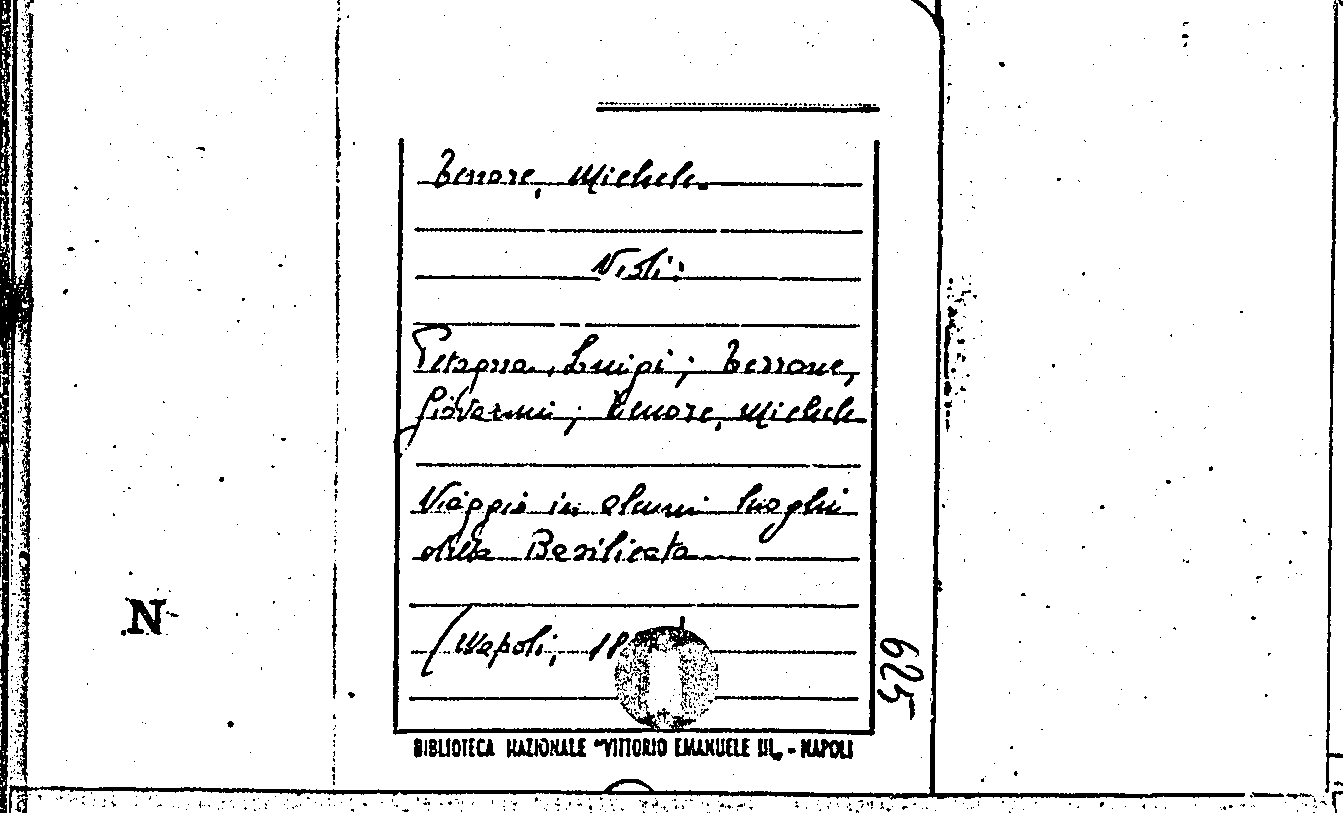 Tenore, Michele.
Vedi:
Petagna, Luigi; Terrone,
Giovanni; Tenore, Michele
Viaggio in alcuni luoghi
della Basilicata
(Napoli, 18
625
N
BIBLIOTECA NAZIONALE "VITTORIO EMANUELE III„ - NAPOLI